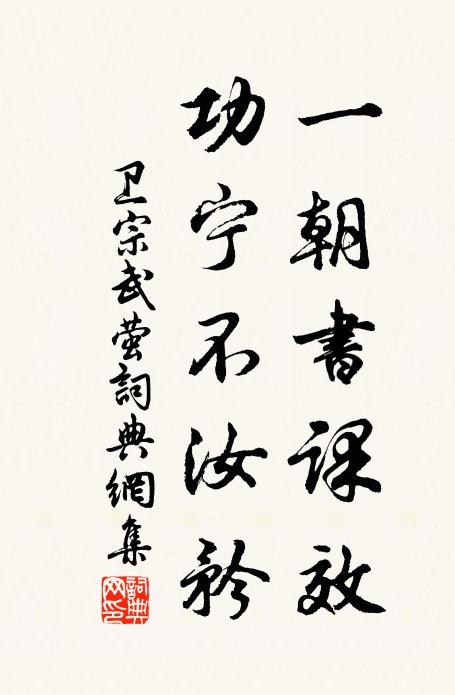 一朝書課效
功宁不汝矜
卫宗武萤詞典網集
詞典网印